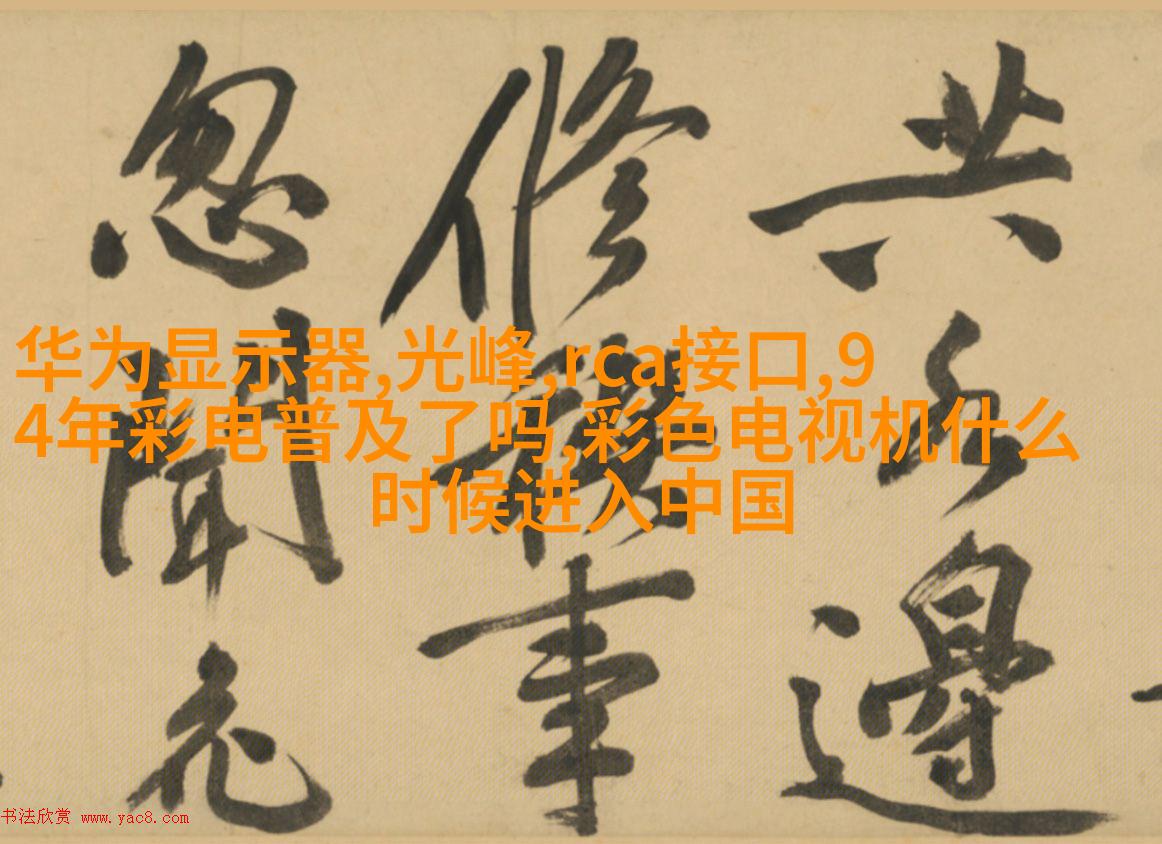 华为显示器,光峰,rca接口,9
4年彩电普及了吗,彩色电视机什么
时候进入中国
共水邊
修禊事
忽聞
书法欣赏 www.yac8.com